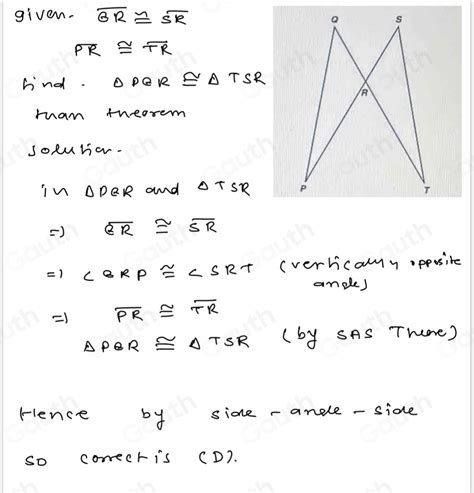 given. QR ≅ SR
PR ≅ TR
find. △ PQR ≅ △ TSR
than theorem
solution.
in △PQR and △TSR
=) QR ≅ SR
=) <QRP ≅ <SRT (vertically opposite
angle)
=) PR ≅ TR
△PQR ≅ △TSR (by SAS There)
Hence by side - angle - side
so correct is (D).
Q
S
R
P
T
Gauth